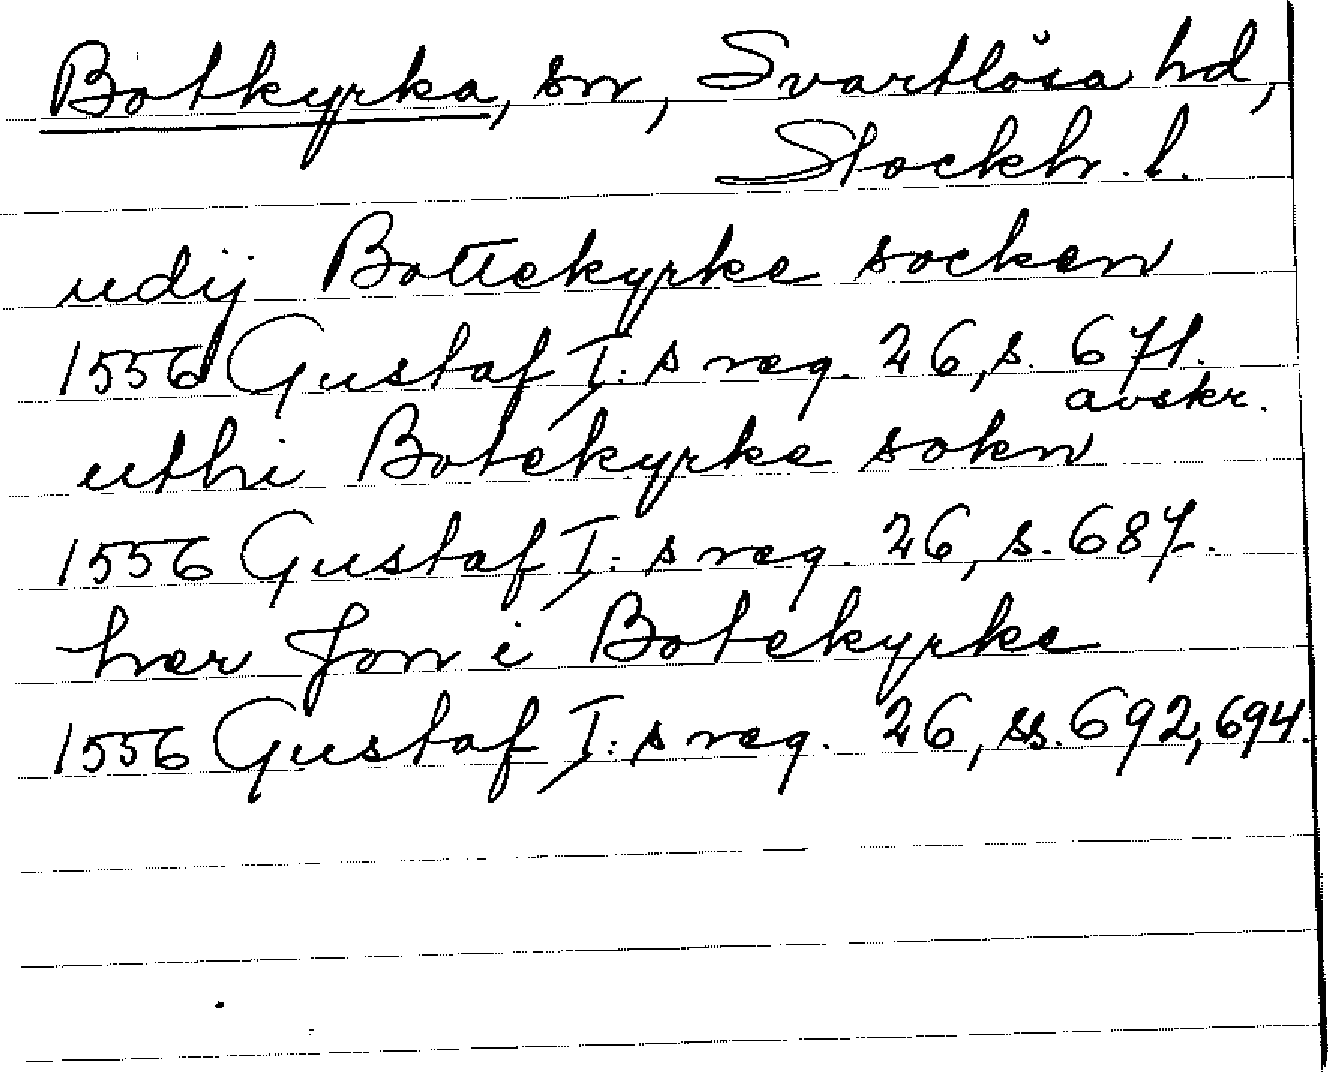 Botkyrka, sn, Svartlösa hd,
Stockh. l.
udij Bottekyrke socken
1556 Gustaf I:s reg. 26, s. 671.
avskr.
uthi Botekyrke sokn
1556 Gustaf I:s reg. 26, s. 687.
her Jon i Botekyrke
1556 Gustaf I:s reg. 26, ss. 692, 694.